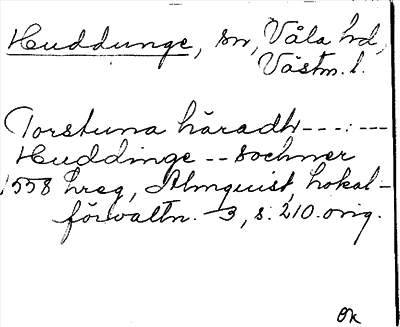 Huddunge, sn, Våla hd,
Västm. l.
Torstuna häradh ---:---
Huddinge -- sochner
1558 hreg, Almquist, Lokal-
förvaltn. 3, s. 210. orig.
Ök